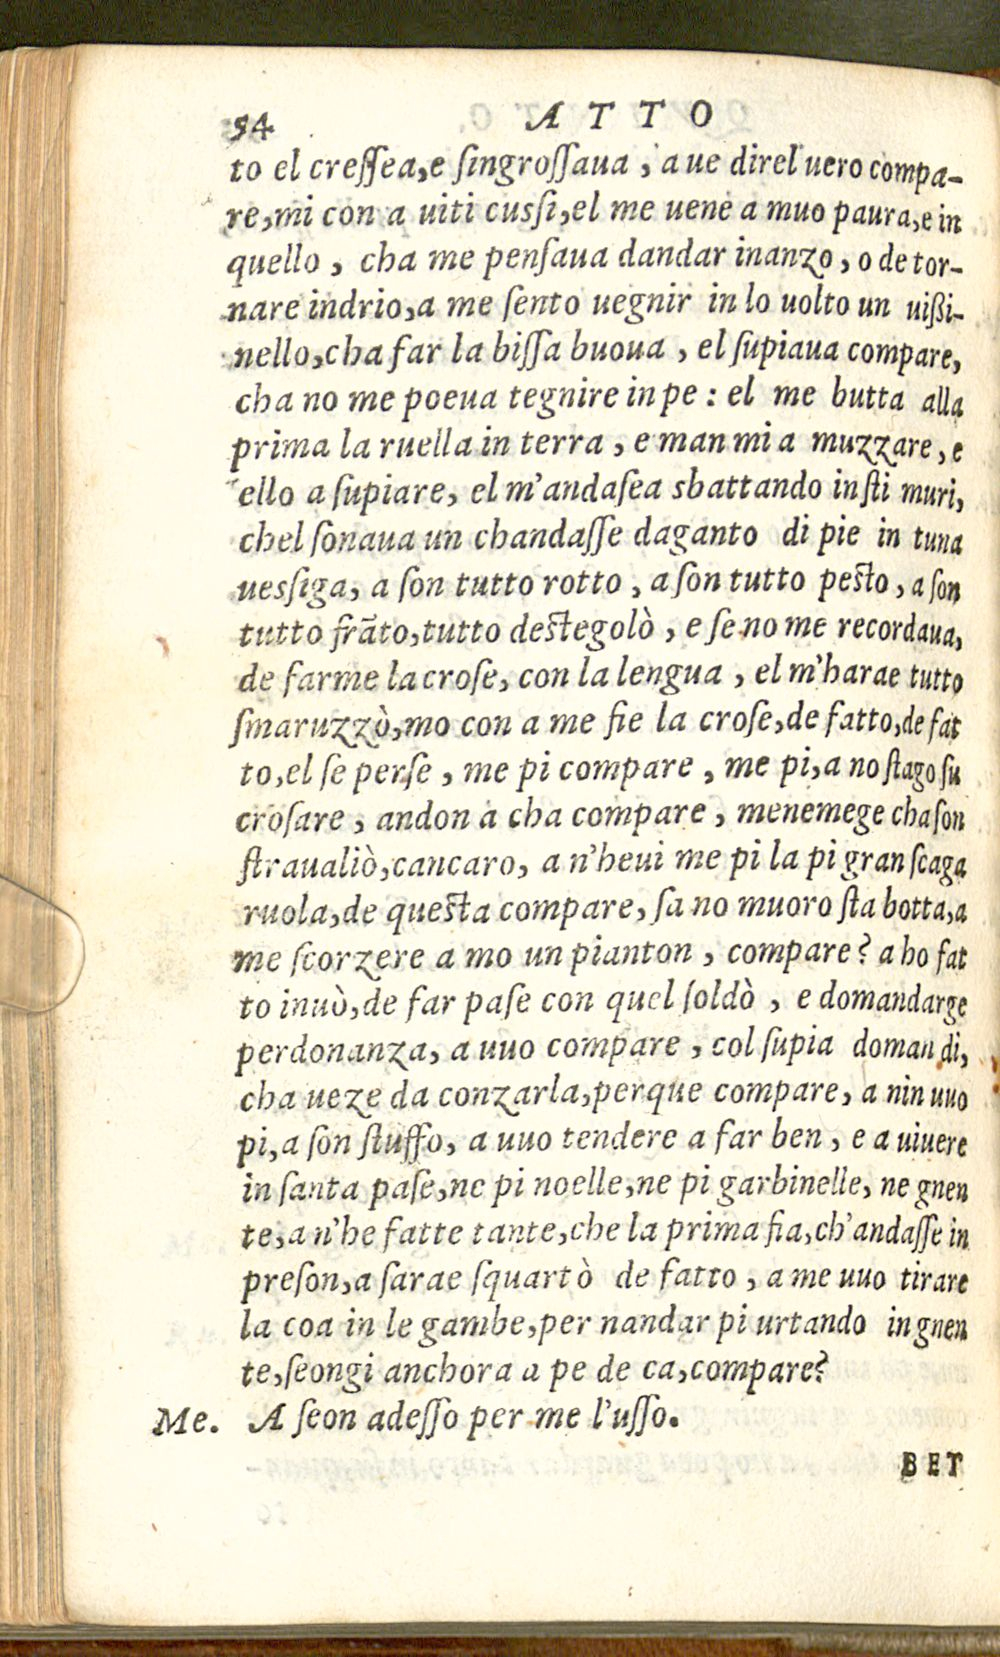 54 ATTO
to el creſſea,e ſingroſſaua , a ue direl uero compa-
re,mi con a uiti cusſi,el me uene a muo paura,e in
quello , cha me penſaua dandar inanzo , o de tor-
nare indrio,a me ſento uegnir in lo uolto un uißi-
nello,cha far la biſſa buoua , el ſupiaua compare,
cha no me poeua tegnire in pe : el me butta alla
prima la ruella in terra , e man mi a muzzare , e
ello a ſupiare, el m'andaſea sbattando in ſti muri,
chel ſonaua un chandaſſe daganto di pie in tuna
uesſiga, a ſon tutto rotto , a ſon tutto peſto , a ſon
tutto frāto,tutto deſtegolò , e ſe no me recordaua,
de farme la croſe, con la lengua , el m'harae tutto
ſmaruzzò,mo con a me fie la croſe,de fatto,de fat
to,el ſe perſe , me pi compare , me pi,a no ſtago ſu
croſare , andon a cha compare , menemege cha ſon
ſtraualiò,cancaro, a n'heui me pi la pi gran ſcaga
ruola,de queſta compare, ſa no muoro ſta botta,a
me ſcorzere a mo un pianton , compare? a ho fat
to inuò,de far paſe con quel ſoldò , e domandarge
perdonanza, a uuo compare , col ſupia doman di,
cha ueze da conzarla,perque compare, a nin uuo
pi,a ſon ſtuffo, a uuo tendere a far ben , e a uiuere
in ſanta paſe,ne pi noelle,ne pi garbinelle, ne gnen
te,a n'he fatte tante,che la prima fia,ch'andaſſe in
preſon,a ſarae ſquartò de fatto , a me uuo tirare
la coa in le gambe,per nandar pi urtando in gnen
te,ſeongi anchora a pe de ca,compare?
Me. A ſeon adeſſo per me l'uſſo.
BET